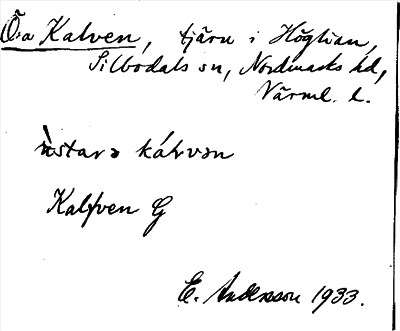 Ö:a Kalven, tjärn i Höglian,
Silbodals sn, Nordmarks hd,
Värml. l.
ùstarə kálvən
Kalfven G
E. Andersson 1933.